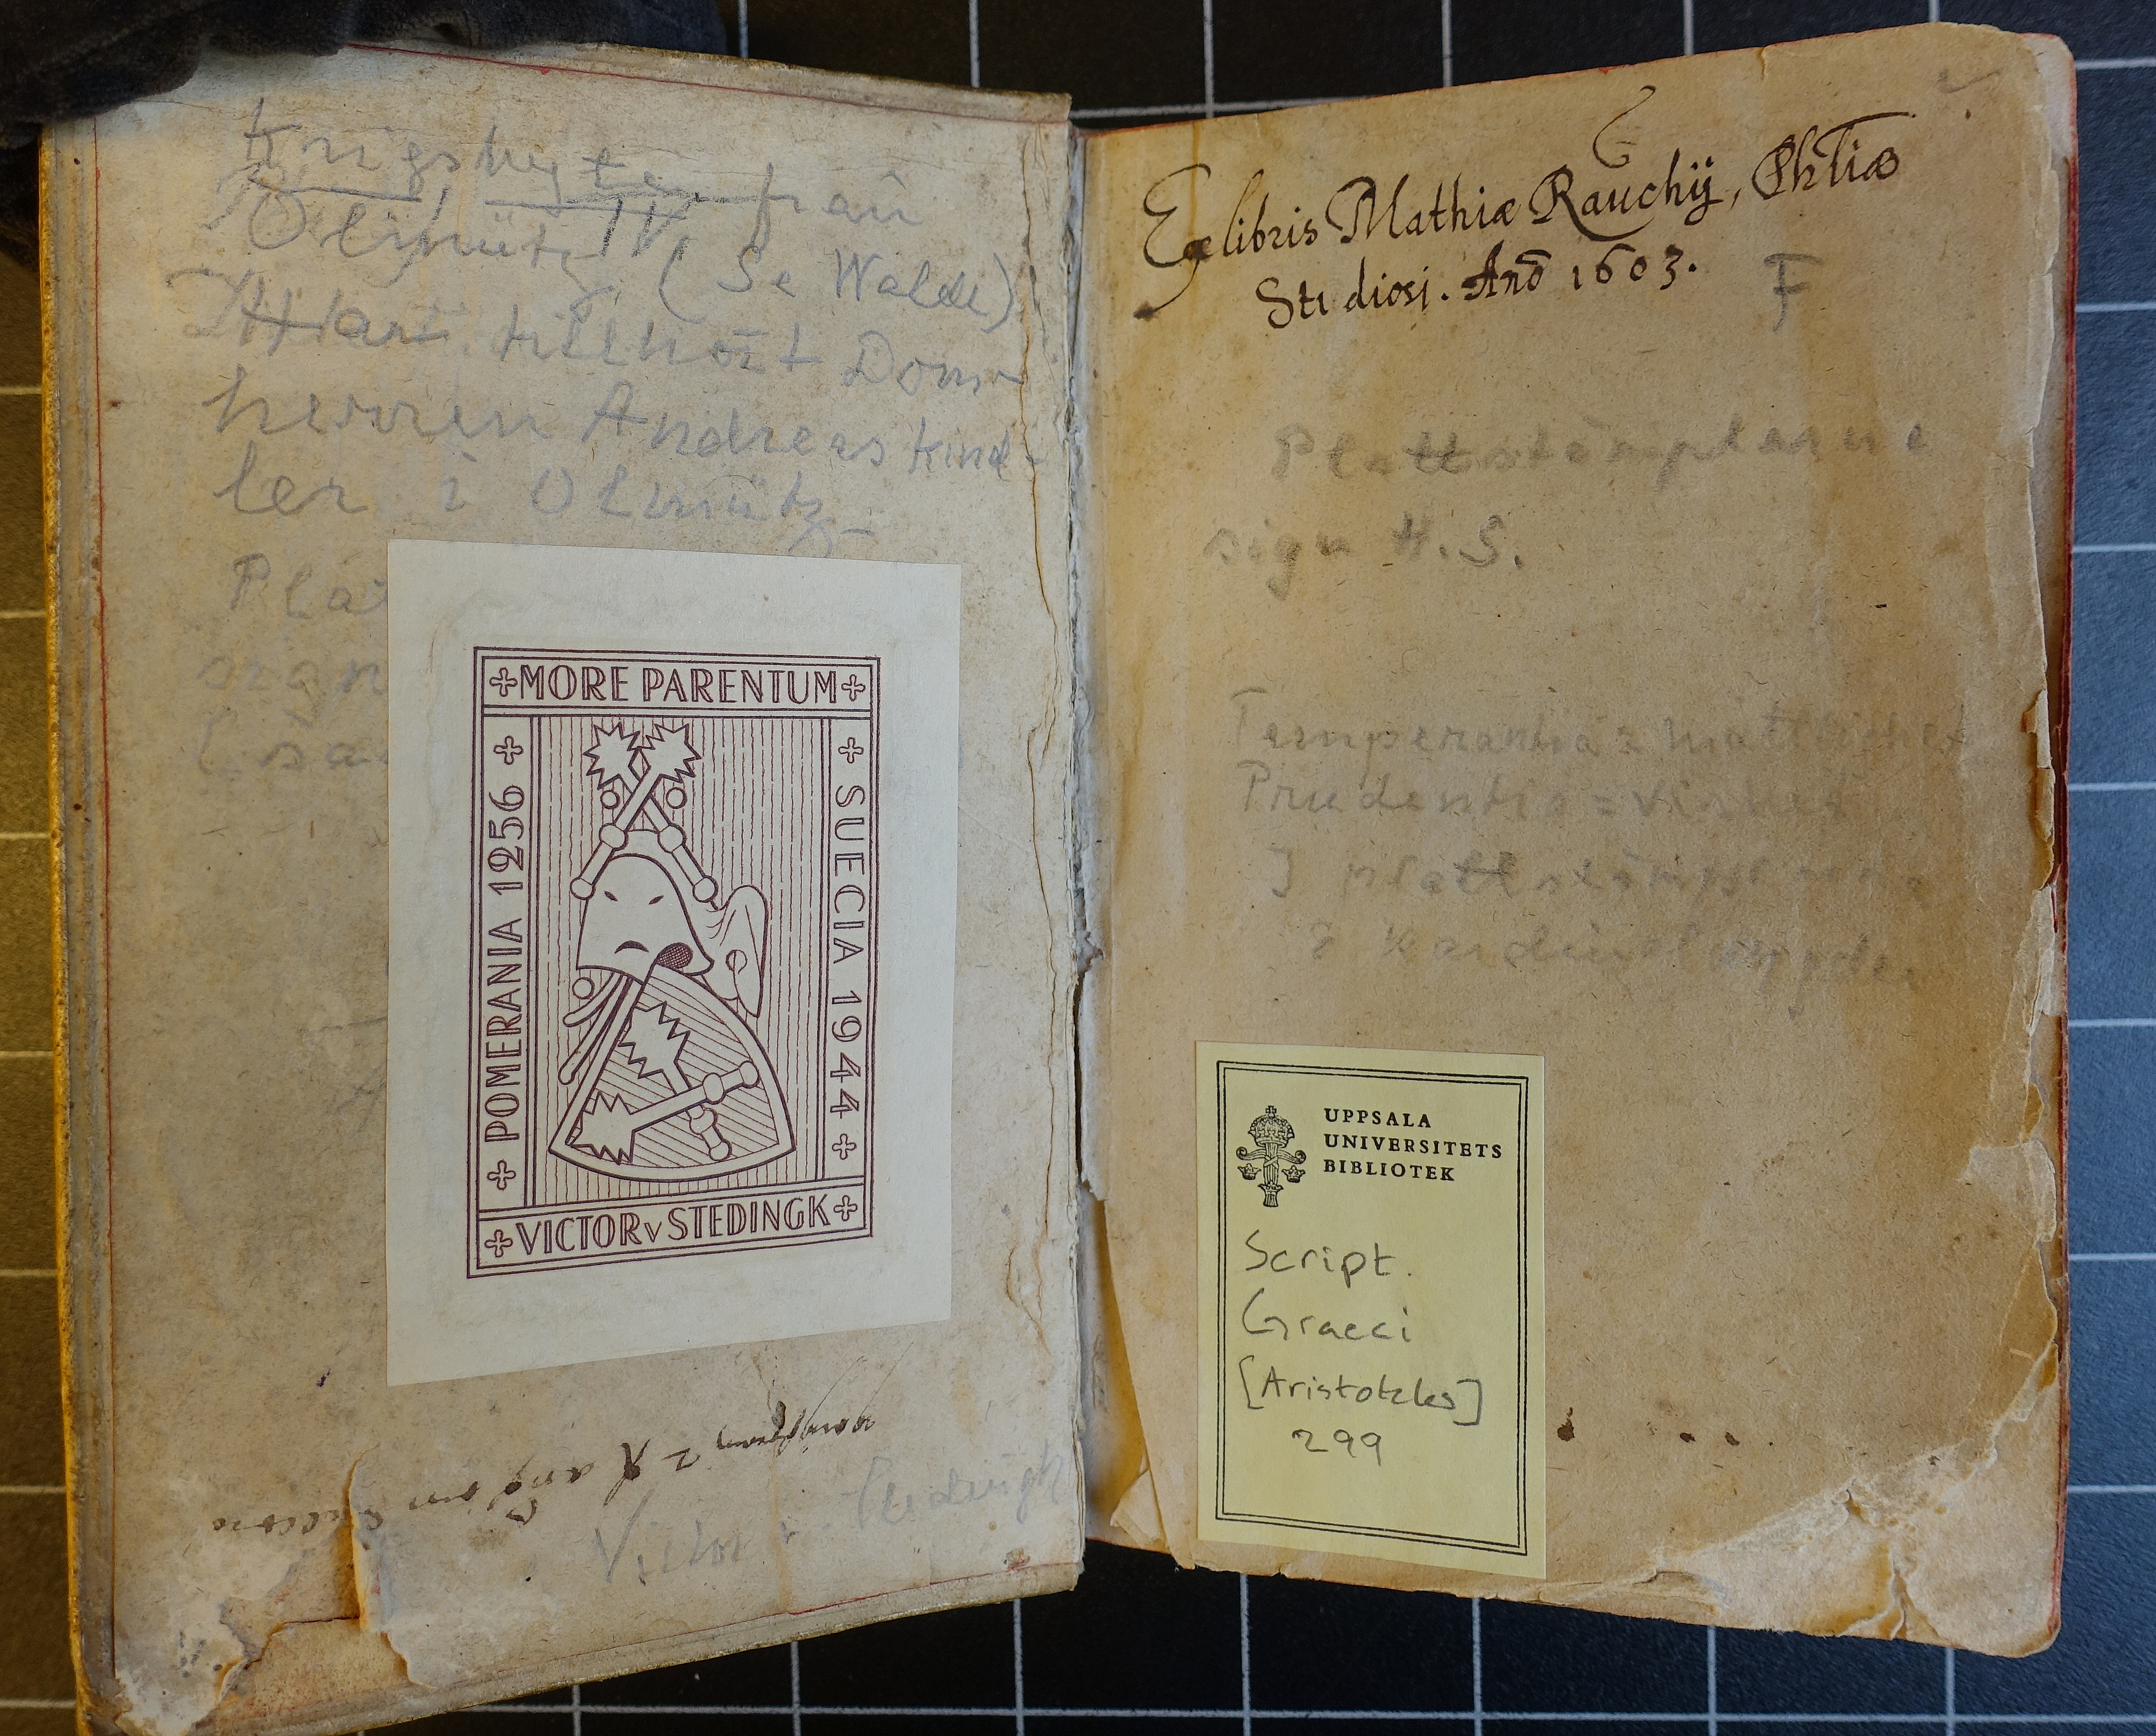 Krigsbyte från
Olmütz IV (Se Walde)
Har tillhört Dom-
herren Andreas Kind-
ler i Olmütz
Plat
sign
+MORE PARENTUM+
+ POMERANIA 1256 +
+ SUECIA 1944 +
+VICTOR v STEDINGK+
Victor v. Stedingk
Ex libris Mathiæ Rauchij, Phliæ
Studiosi. Anō 1603.
F
Plattstämplarne
sign H.S.
Temperantia = måttlighet
Prudentia = vishet
I plattstämplarne
2 Kardinaldygder
UPPSALA
UNIVERSITETS
BIBLIOTEK
Script.
Graeci
[Aristoteles]
299